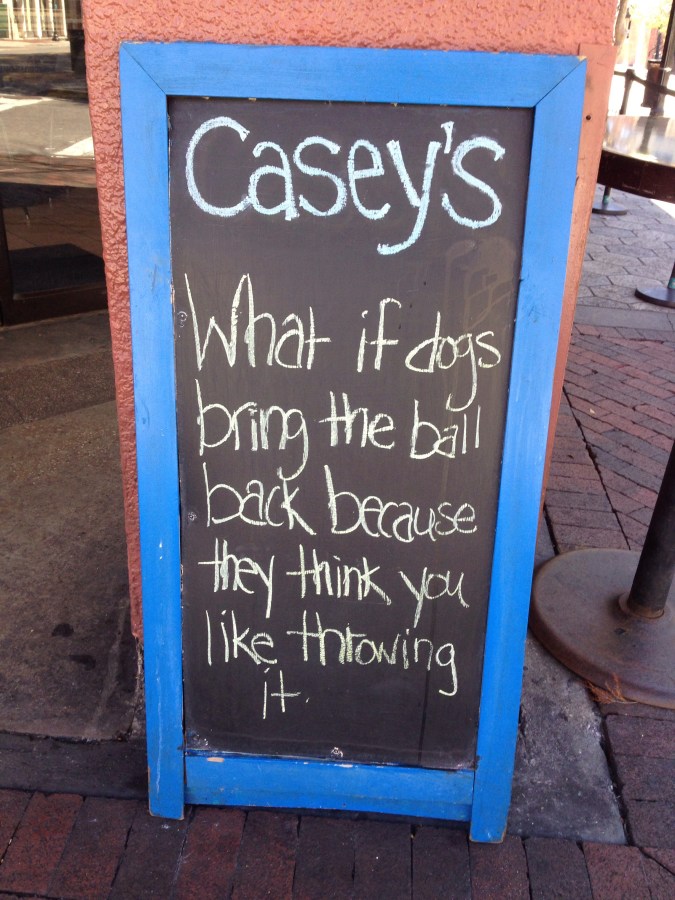 Casey's
What if dogs
bring the ball
back because
they think you
like throwing
it.